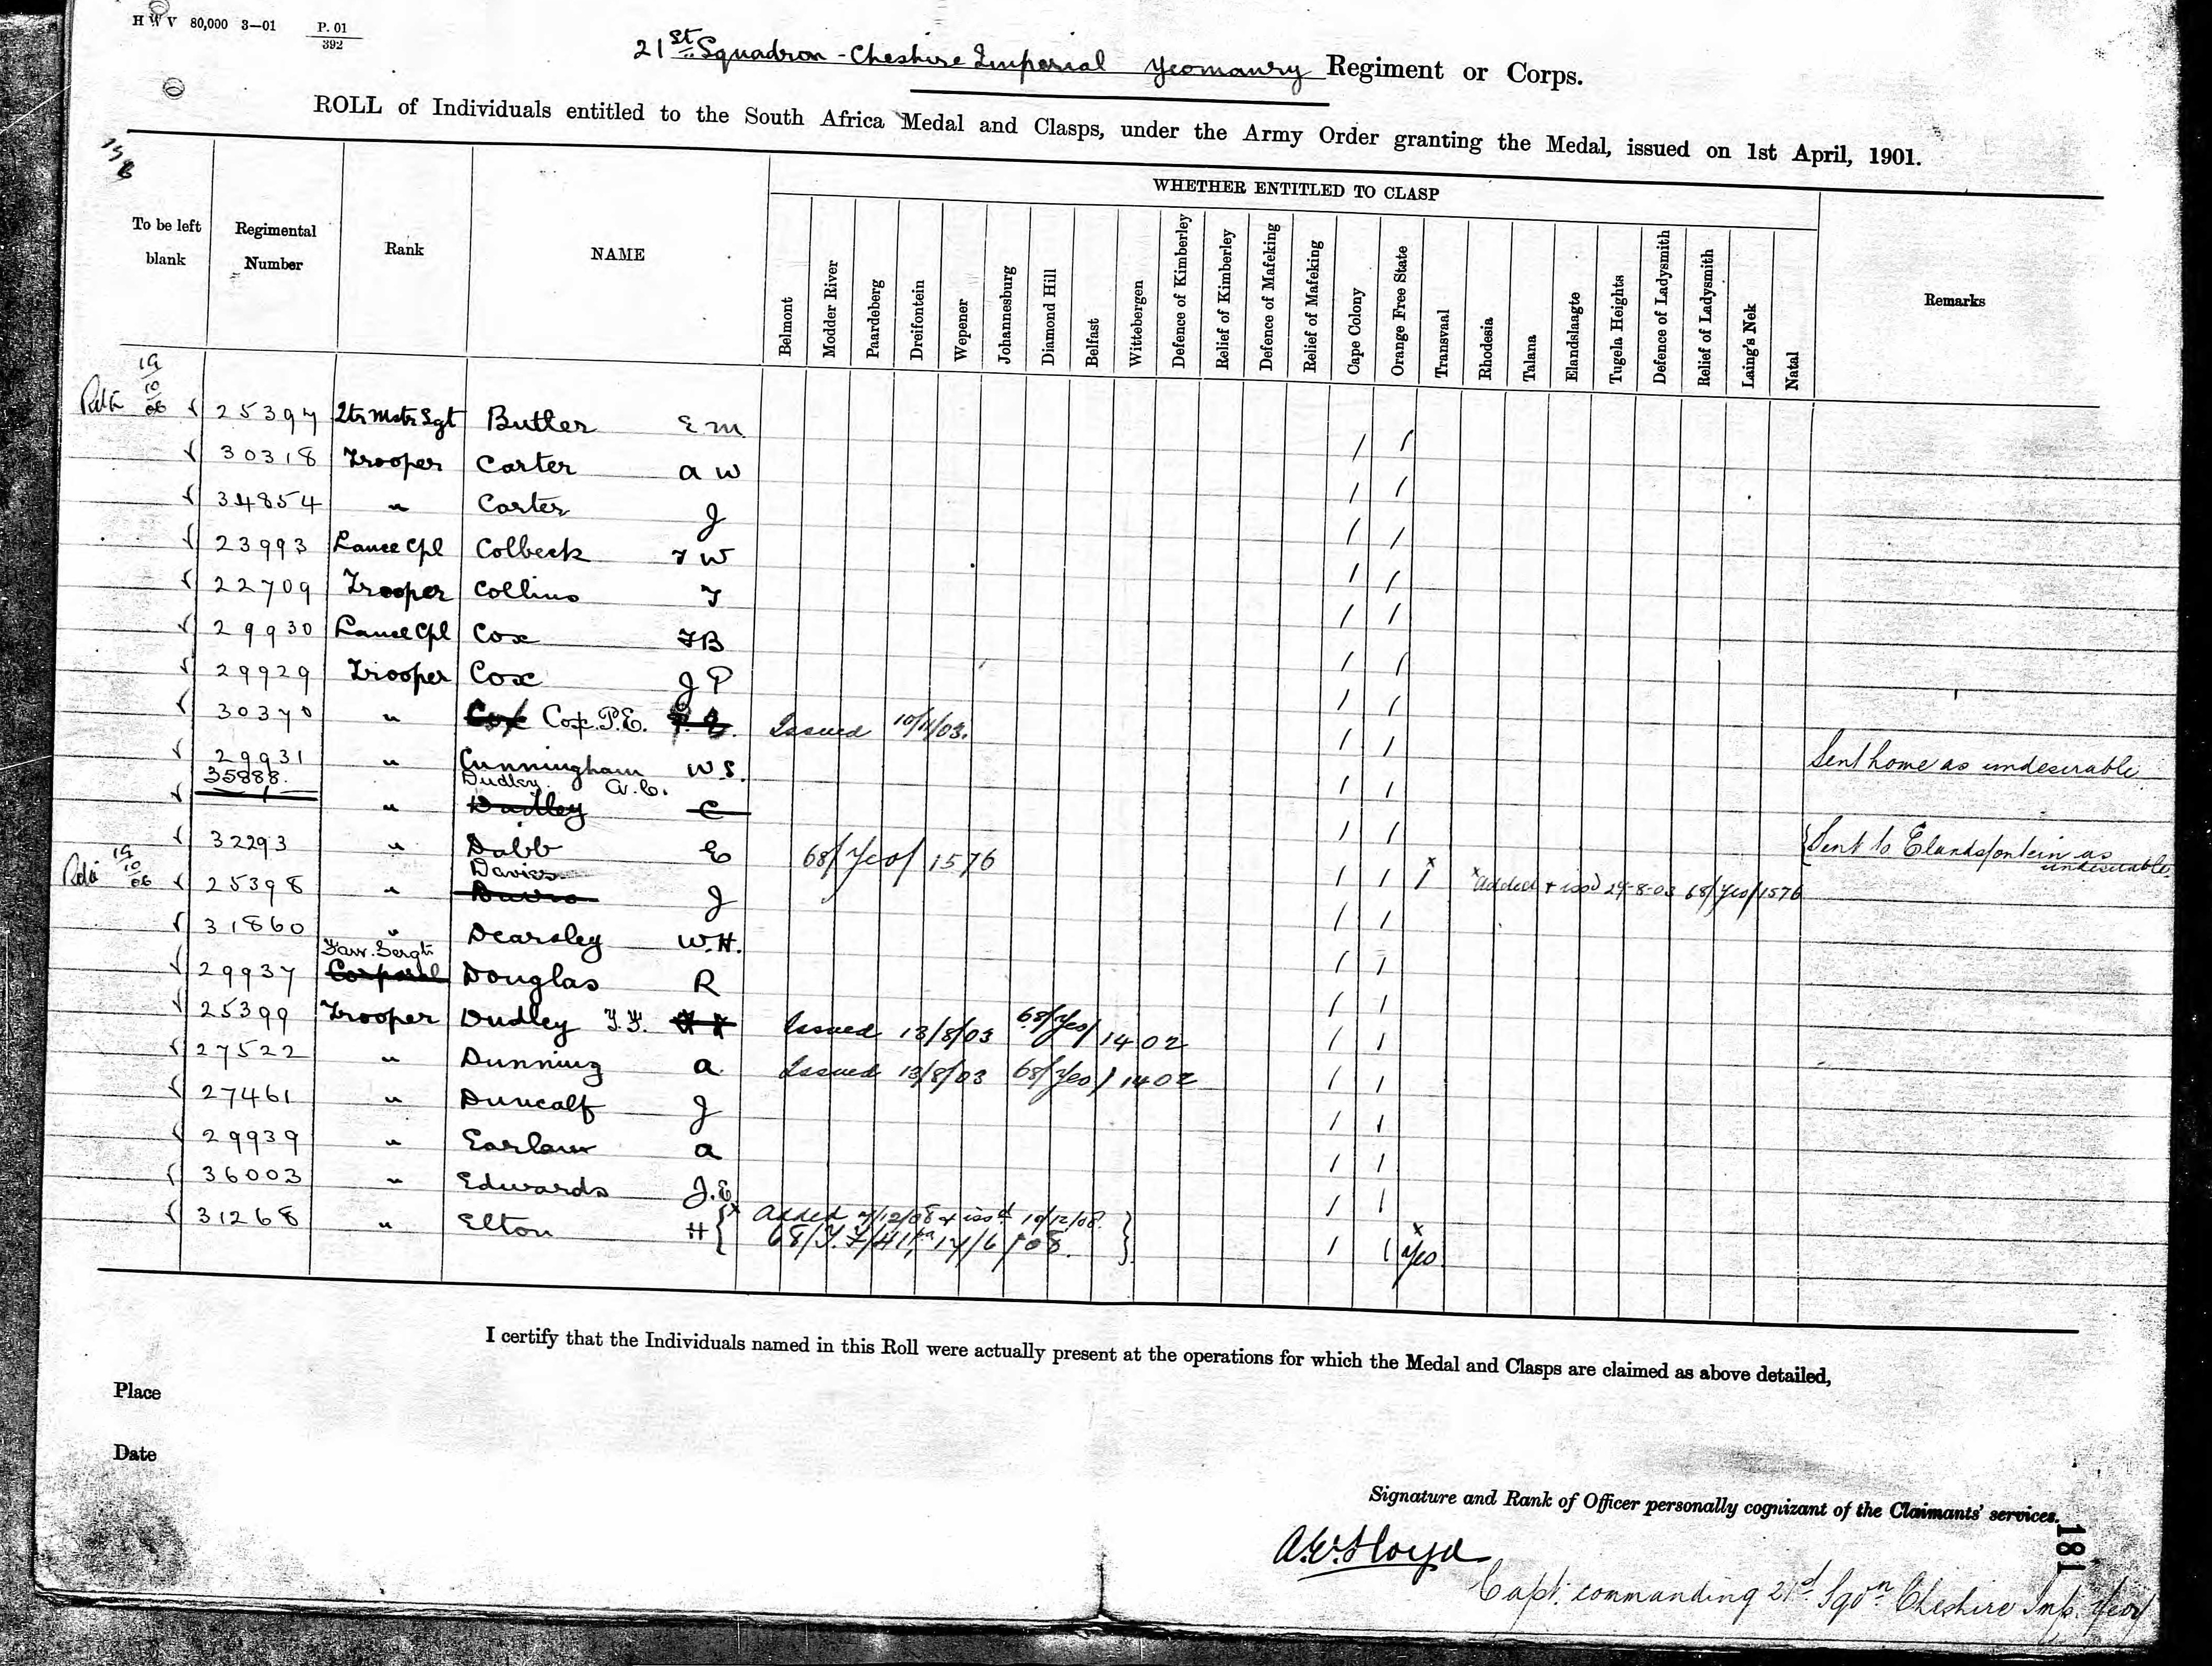 H W V 80,000 3—01 P. 01
392
21st Squadron - Cheshire Imperial Yeomanry Regiment or Corps.
ROLL of Individuals entitled to the South Africa Medal and Clasps, under the Army Order granting the Medal, issued on 1st April, 1901.
WHETHER ENTITLED TO CLASP
To be left blank
Regimental Number
Rank
NAME
Belmont
Modder River
Paardeberg
Dreifontein
Wepener
Johannesburg
Diamond Hill
Belfast
Wittebergen
Defence of Kimberley
Relief of Kimberley
Defence of Mafeking
Relief of Mafeking
Cape Colony
Orange Free State
Transvaal
Rhodesia
Talana
Elandslaagte
Tugela Heights
Defence of Ladysmith
Relief of Ladysmith
Laing's Nek
Natal
Remarks
19/10/06 25397 Qtr Mstr Sgt Butler E M / /
30318 Trooper Carter A W / /
34854 " Carter J / /
23993 Lance Cpl Colbeck T W / /
22709 Trooper Collins T / /
29930 Lance Cpl Cox F B / /
29929 Trooper Cox J P / /
30370 " Cox Cox P.E. P. E. Issued 10/11/03. / /
29931 " Cunningham W S. / / Sent home as undesirable
35888. " Dudley A. C. Dudley C / /
32293 " Dabb E 68/Yeo/1576 / / Sent to Elandsfontein as undesirable
19/10/06 25398 " Davies J / / x / x Added + issd 29-8-03 68/Yeo/1576
31860 " Dearsley W.H. / /
29937 Farr. Sergt. Corporal Douglas R / /
25399 Trooper Dudley T.F. Issued 13/8/03 68/Yeo/1402 / /
27522 " Dunning A Issued 13/8/03 68/Yeo/1402 / /
27461 " Duncalf J / /
29939 " Earlam A / /
36003 " Edwards J.E / /
31268 " Elton H { x Added /12/08 + issd 10/12/08. 68/ / 17/6/08. } / / x Yes
I certify that the Individuals named in this Roll were actually present at the operations for which the Medal and Clasps are claimed as above detailed,
Place
Date
Signature and Rank of Officer personally cognizant of the Claimants' services.
181
Lloyd
Capt. commanding 21st Sqdn Cheshire Imp. Yeoy